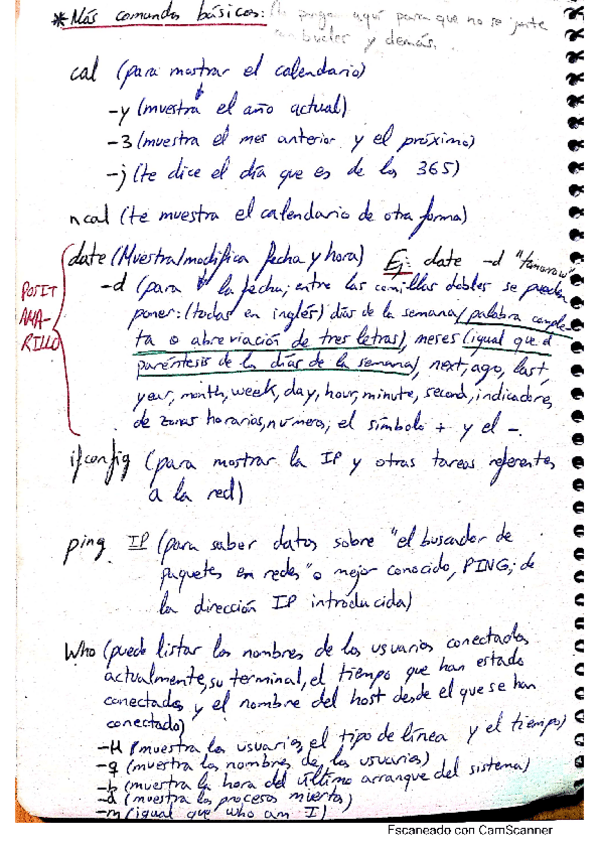 * Más comandos básicos: Lo pongo aquí para que no se junte
con bucles y demás.
cal (para mostrar el calendario)
-y (muestra el año actual)
-3 (muestra el mes anterior y el próximo)
-j (te dice el día que es de los 365)
ncal (te muestra el calendario de otra forma)
date (Muestra/modifica fecha y hora) Ej: date -d "tomorrow"
-d (para la fecha; entre las comillas dobles se pueden
POSIT AMA-RILLO
poner: (todas en inglés) días de la semana (palabra comple-
ta o abreviación de tres letras), meses (igual que el
paréntesis de los días de la semana), next, ago, last,
year, month, week, day, hour, minute, second, indicadores
de zonas horarias, números; el símbolo + y el -.
ifconfig (para mostrar la IP y otras tareas referentes
a la red)
ping IP (para saber datos sobre "el buscador de
paquetes en redes" o mejor conocido, PING; de
la dirección IP introducida)
Who (puede listar los nombres de los usuarios conectados
actualmente, su terminal, el tiempo que han estado
conectados y el nombre del host desde el que se han
conectado)
-H (muestra los usuarios, el tipo de línea y el tiempo)
-q (muestra los nombres de los usuarios)
-b (muestra la hora del último arranque del sistema)
-d (muestra los procesos muertos)
-m (igual que who am I)
Escaneado con CamScanner